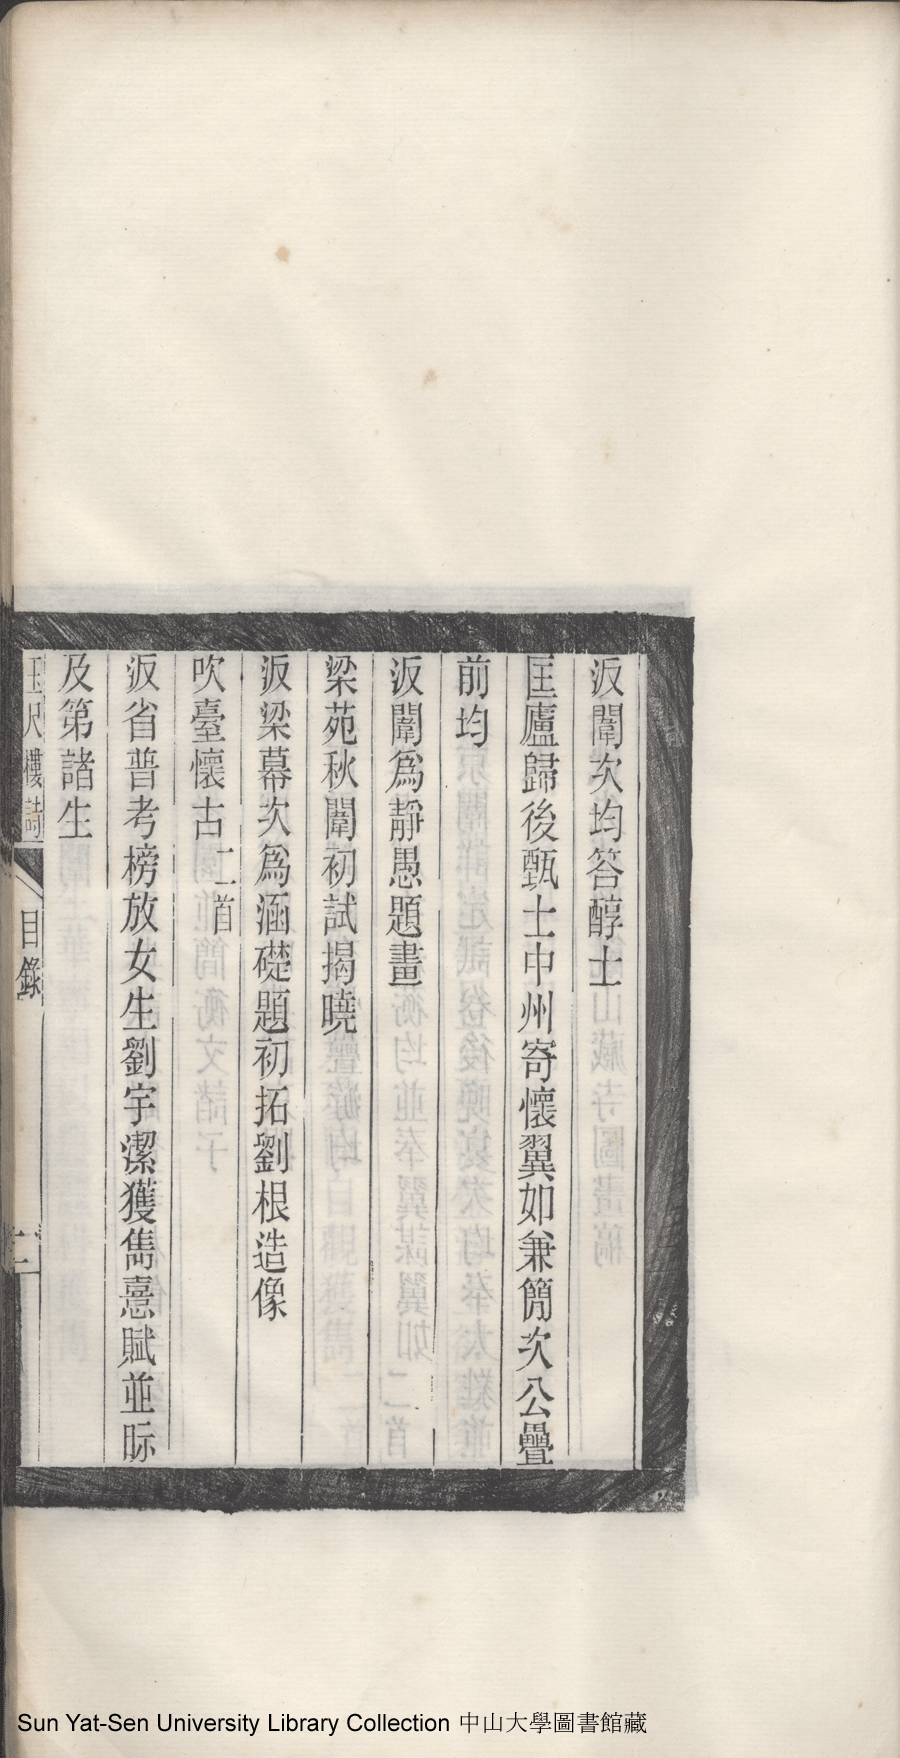 汳闈次均答醇士
匡廬歸後甄士中州寄懷翼如兼簡次公疊
前均
汳闈為靜愚題畫
梁苑秋闈初試揭曉
汳梁幕次為涵礎題初拓劉根造像
吹臺懷古二首
汳省普考榜放女生劉宇潔獲雋憙賦並眎
及第諸生
玉尺樓詩
目錄
二
Sun Yat-Sen University Library Collection 中山大學圖書館藏